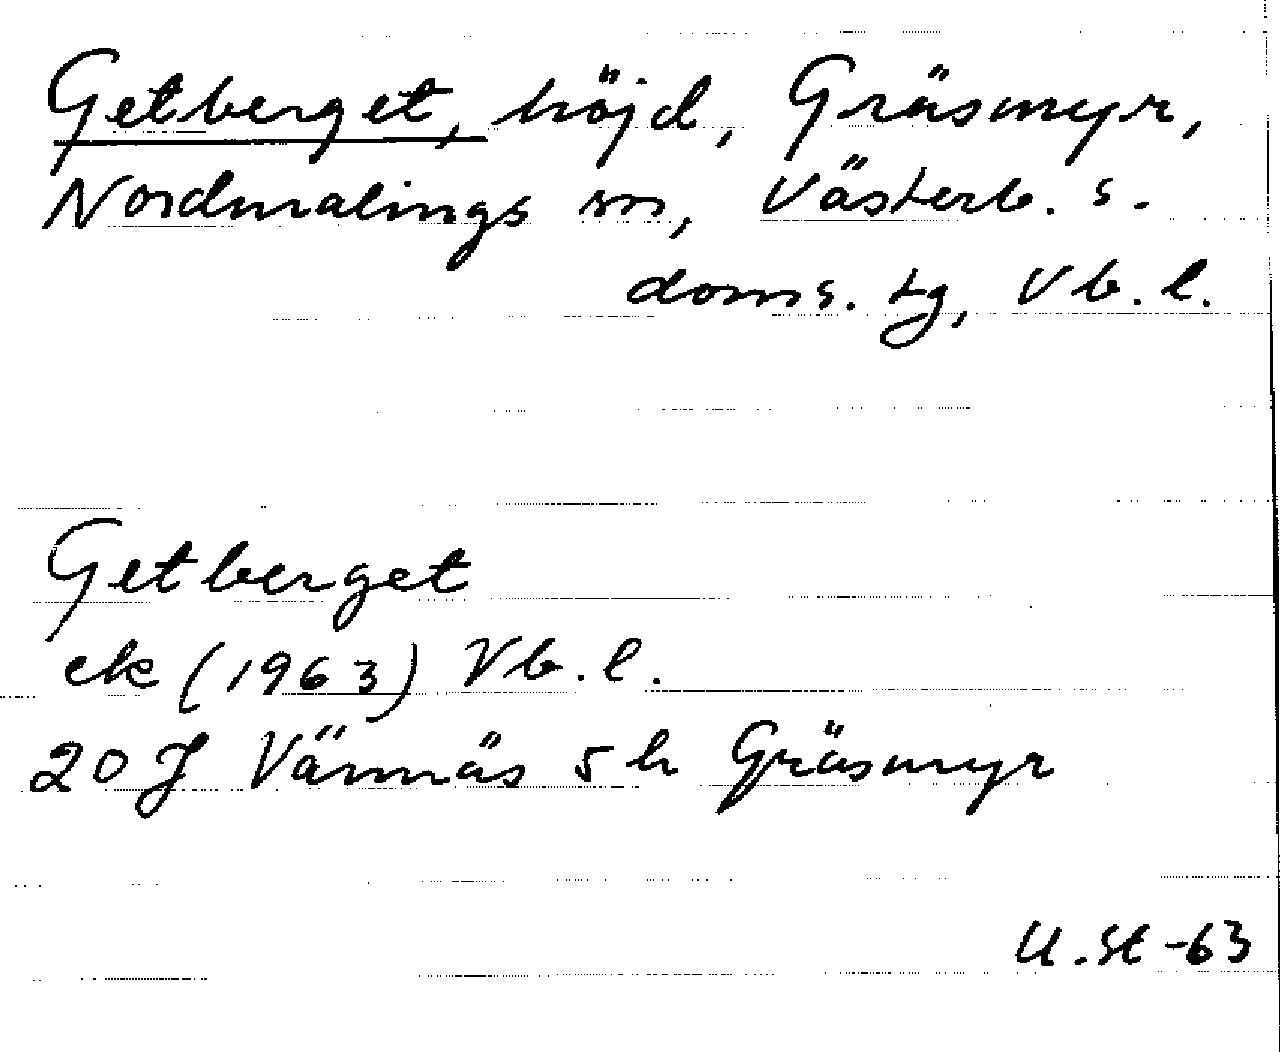 Getberget, höjd, Gräsmyr,
Nordmalings sn, Västerb. s.
doms. tg, Vb. l.
Getberget
ek (1963) Vb. l.
20 J Vännäs 5 h Gräsmyr
U. St -63